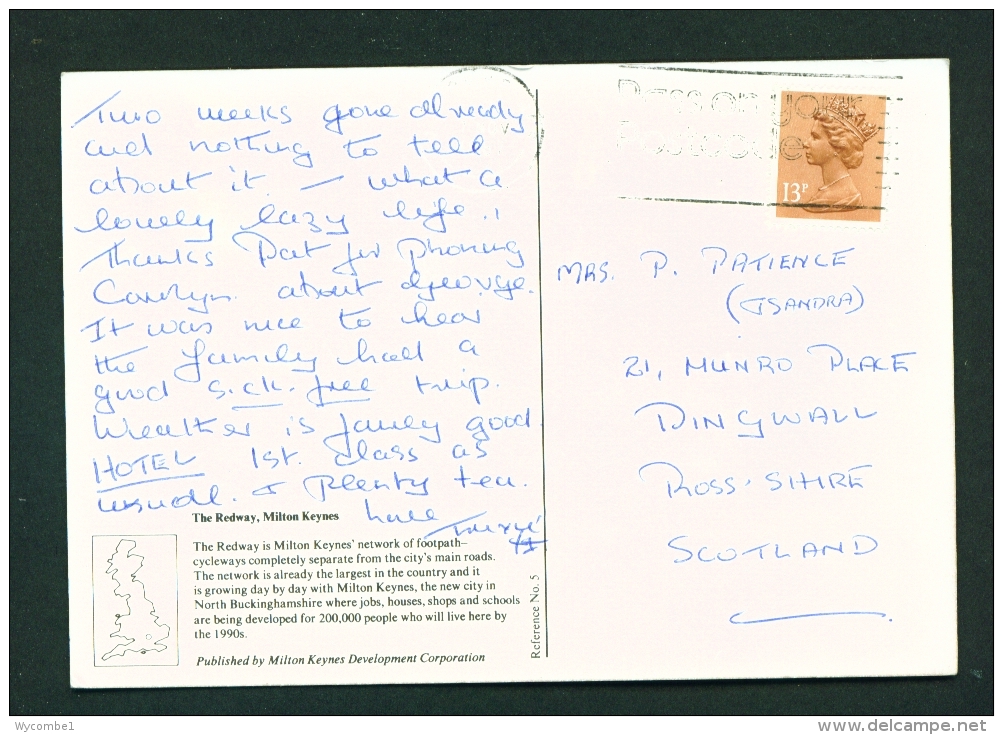 Two weeks gone already
and nothing to tell
about it. — what a
lovely lazy life!!
Thanks Pat for phoning
Carolyn about George.
It was nice to hear
the family had a
good sick-free trip.
Weather is fairly good.
HOTEL 1st. class as
usual. & plenty tea.
love
The Redway, Milton Keynes
The Redway is Milton Keynes' network of footpath–
cycleways completely separate from the city's main roads.
The network is already the largest in the country and it
is growing day by day with Milton Keynes, the new city in
North Buckinghamshire where jobs, houses, shops and schools
are being developed for 200,000 people who will live here by
the 1990s.
Published by Milton Keynes Development Corporation
Reference No. 5
Pass on your
Postcode
13P
MRS. P. PATIENCE
(TSANDRA)
21, MUNRO PLACE
DINGWALL
ROSS-SHIRE
SCOTLAND
Wycombe1
www.delcampe.net